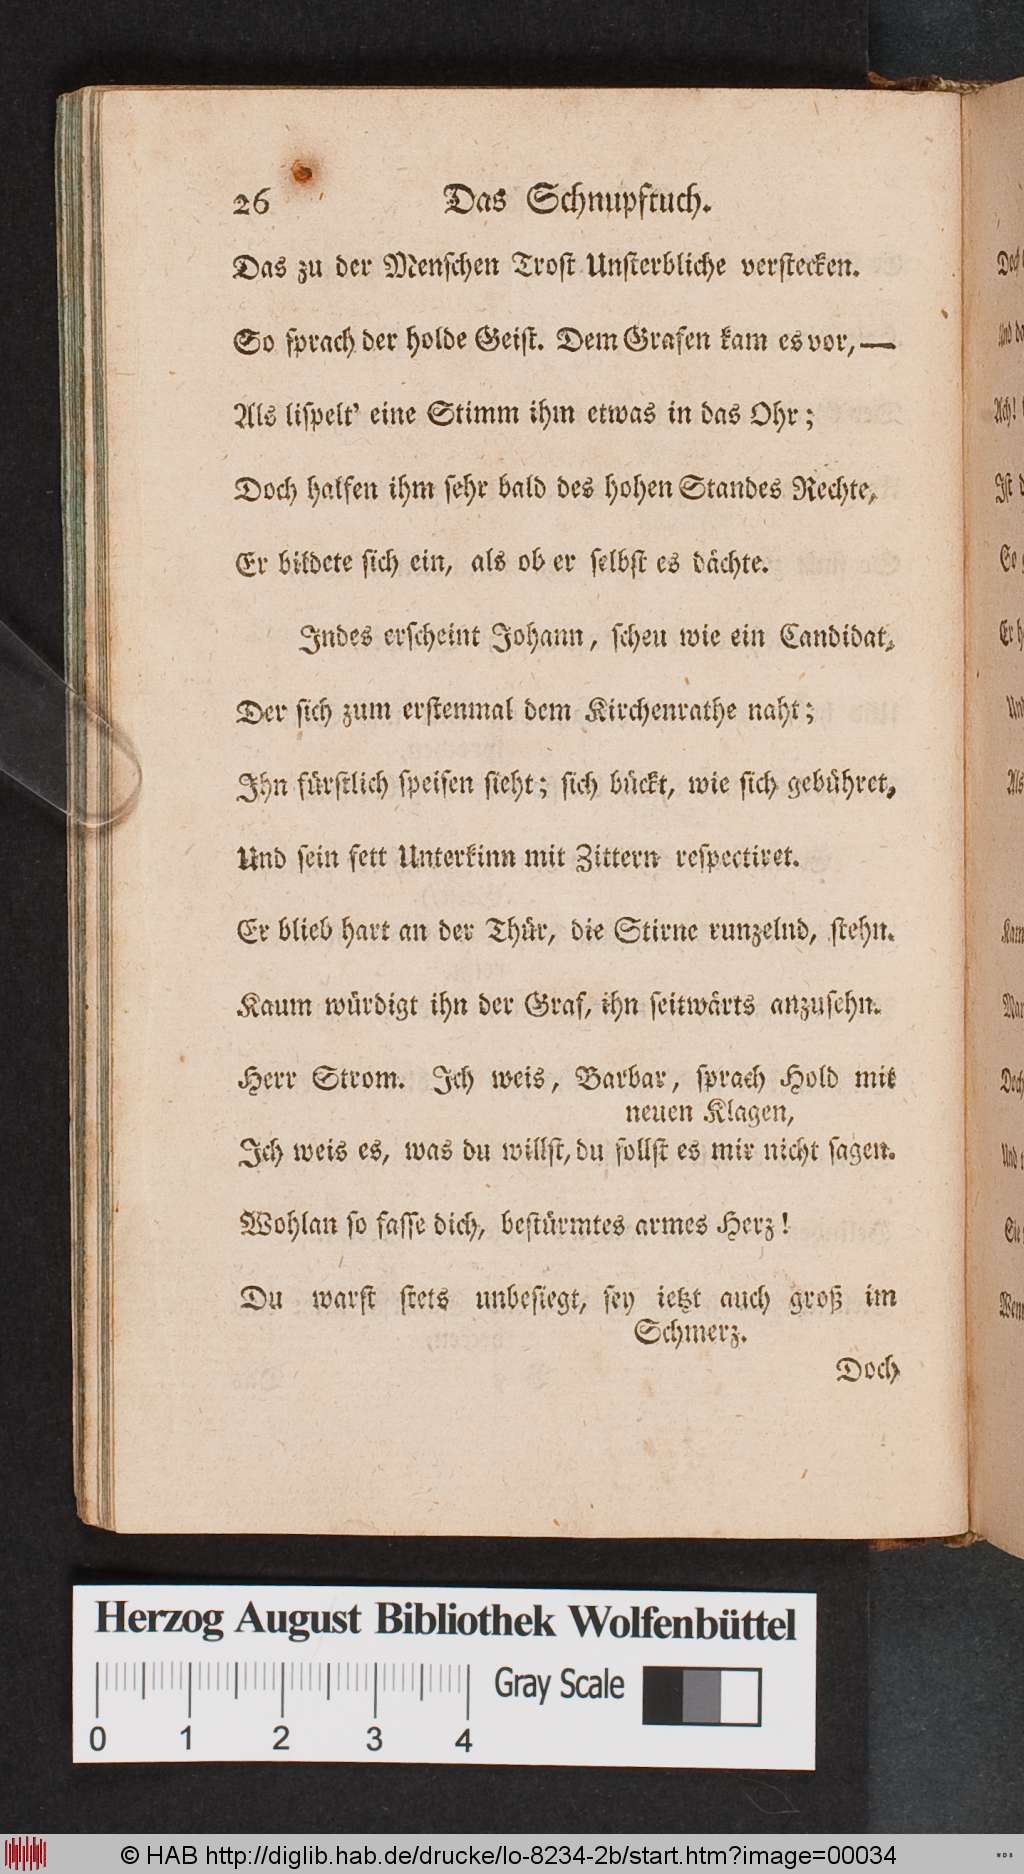 26 Das Schnupftuch.
Das zu der Menschen Trost Unsterbliche verstecken.
So sprach der holde Geist. Dem Grafen kam es vor, —
Als lispelt' eine Stimm ihm etwas in das Ohr;
Doch halfen ihm sehr bald des hohen Standes Rechte,
Er bildete sich ein, als ob er selbst es dächte.
Indes erscheint Johann, scheu wie ein Candidat,
Der sich zum erstenmal dem Kirchenrathe naht;
Ihn fürstlich speisen sieht; sich bückt, wie sich gebühret,
Und sein fett Unterkinn mit Zittern respectiret.
Er blieb hart an der Thür, die Stirne runzelnd, stehn.
Kaum würdigt ihn der Graf, ihn seitwärts anzusehn.
Herr Strom. Ich weis, Barbar, sprach Hold mit
neuen Klagen,
Ich weis es, was du willst, du sollst es mir nicht sagen.
Wohlan so fasse dich, bestürmtes armes Herz!
Du warst stets unbesiegt, sey ietzt auch groß im
Schmerz.
Doch
Herzog August Bibliothek Wolfenbüttel
Gray Scale
0 1 2 3 4
© HAB http://diglib.hab.de/drucke/lo-8234-2b/start.htm?image=00034